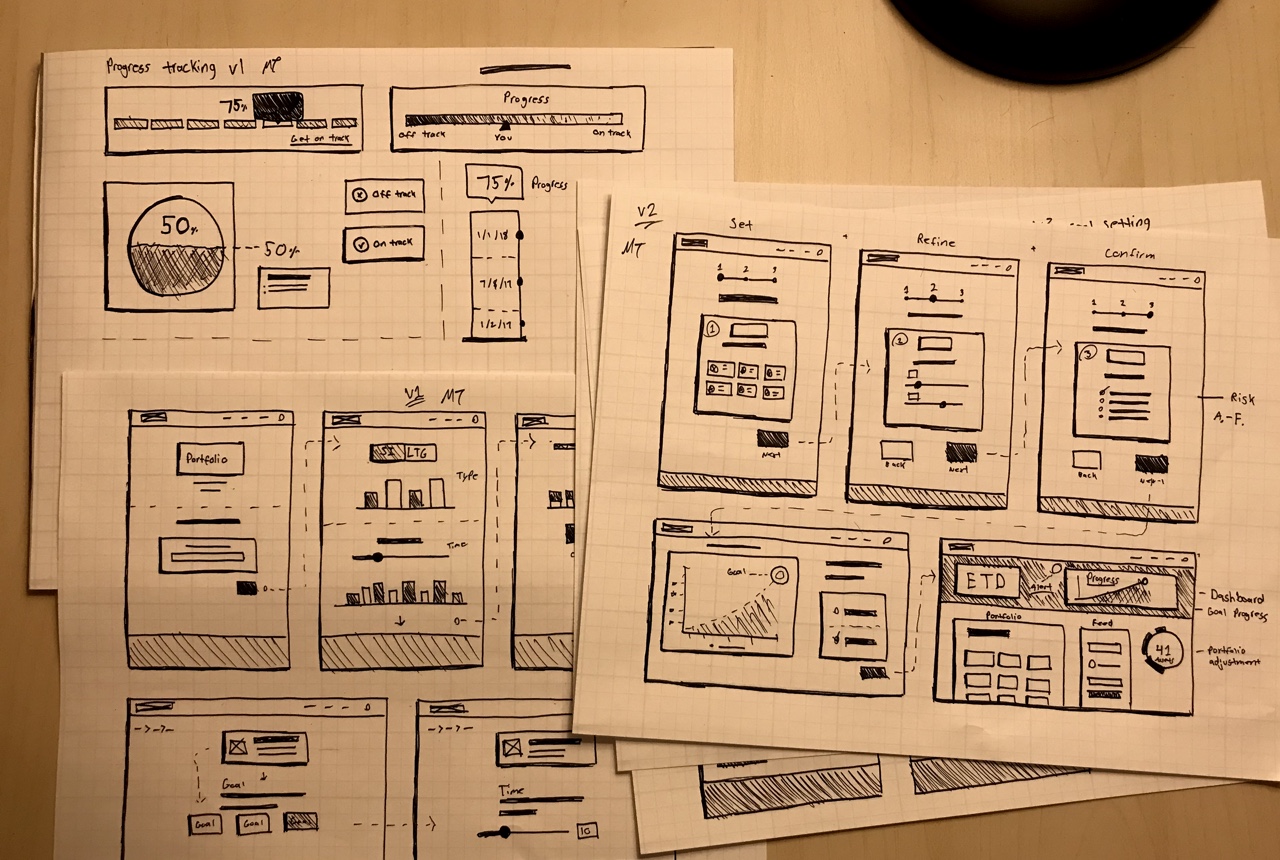 Progress tracking v1 MT
75%
Get on track
Progress
Off track
You
On track
50%
50%
Off track
On track
75%
Progress
1/1/18
7/8/17
1/2/17
V1 MT
Portfolio
LTG
Type
Time
Goal
Goal
Goal
Time
10
V2
MT
setting
Set
1 2 3
1
Next
Refine
1 2 3
2
Back
Next
Confirm
1 2 3
3
Back
Risk
A.-F.
Goal
ETD
Alert
Progress
Portfolio
Feed
41
Dashboard
Goal Progress
Portfolio
adjustment